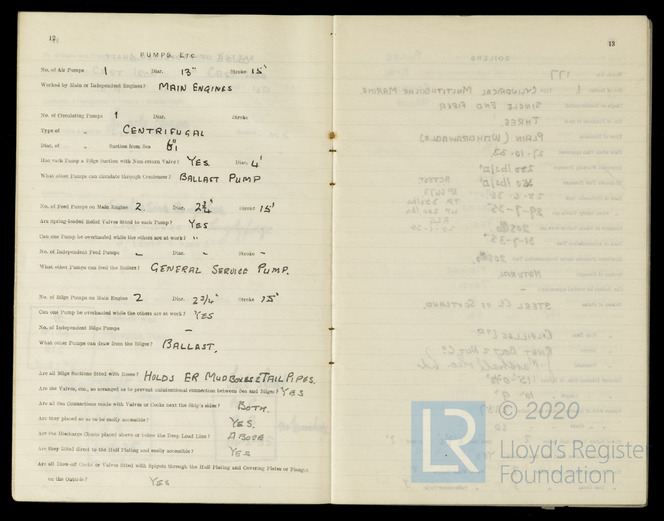 12
PUMPS, ETC.
No. of Air Pumps 1 Diar. 13" Stroke 15"
Worked by Main or Independent Engines? MAIN ENGINES
No. of Circulating Pumps 1 Diar. Stroke
Type of " CENTRIFUGAL
Diar. of " Suction from Sea 6"
Has each Pump a Bilge Suction with Non-return Valve? YES Diar. 4"
What other Pumps can circulate through Condenser? BALLAST PUMP
No. of Feed Pumps on Main Engine 2 Diar. 2¾" Stroke 15"
Are Spring-loaded Relief Valves fitted to each Pump? YES
Can one Pump be overhauled while the others are at work? "
No. of Independent Feed Pumps – Diar. – Stroke –
What other Pumps can feed the Boilers? GENERAL SERVICE PUMP.
No. of Bilge Pumps on Main Engine 2 Diar. 2¾" Stroke 15"
Can one Pump be overhauled while the others are at work? YES
No. of Independent Bilge Pumps –
What other Pumps can draw from the Bilges? BALLAST.
Are all Bilge Suctions fitted with Roses? HOLDS ER MUD BOXES & TAIL PIPES.
Are the Valves, &c., so arranged as to prevent unintentional connection between Sea and Bilges? YES
Are all Sea Connections made with Valves or Cocks next the Ship's sides? BOTH.
Are they placed so as to be easily accessible? YES.
Are the Discharge Chests placed above or below the Deep Load Line? ABOVE
Are they fitted direct to the Hull Plating and easily accessible? YES
Are all Blow-off Cocks or Valves fitted with Spigots through the Hull Plating and Covering Plates or Flanges
on the Outside? YES
13
© 2020
LR
Lloyd's Register
Foundation